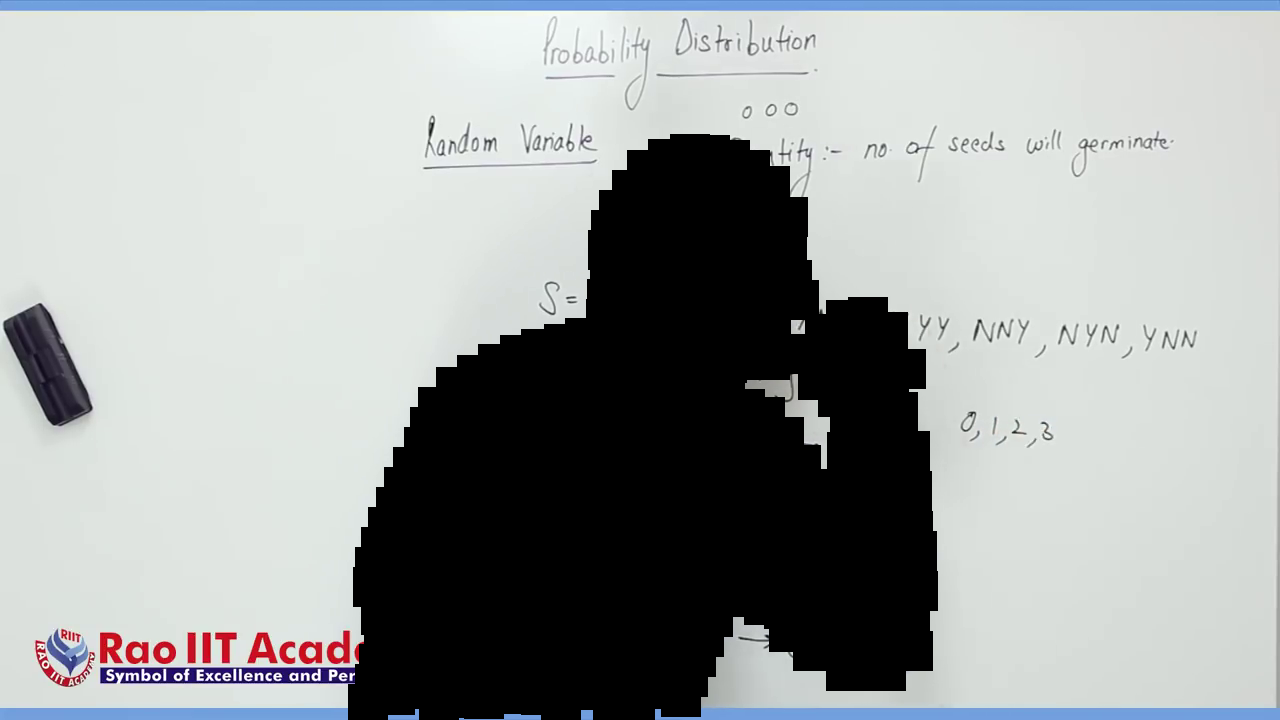 Probability Distribution
o o o
Random Variable :- no. of seeds will germinate.
S =
YY, NNY, NYN, YNN
0, 1, 2, 3
RIIT
RAO IIT ACADEMY
Rao IIT
Symbol of Excellence and